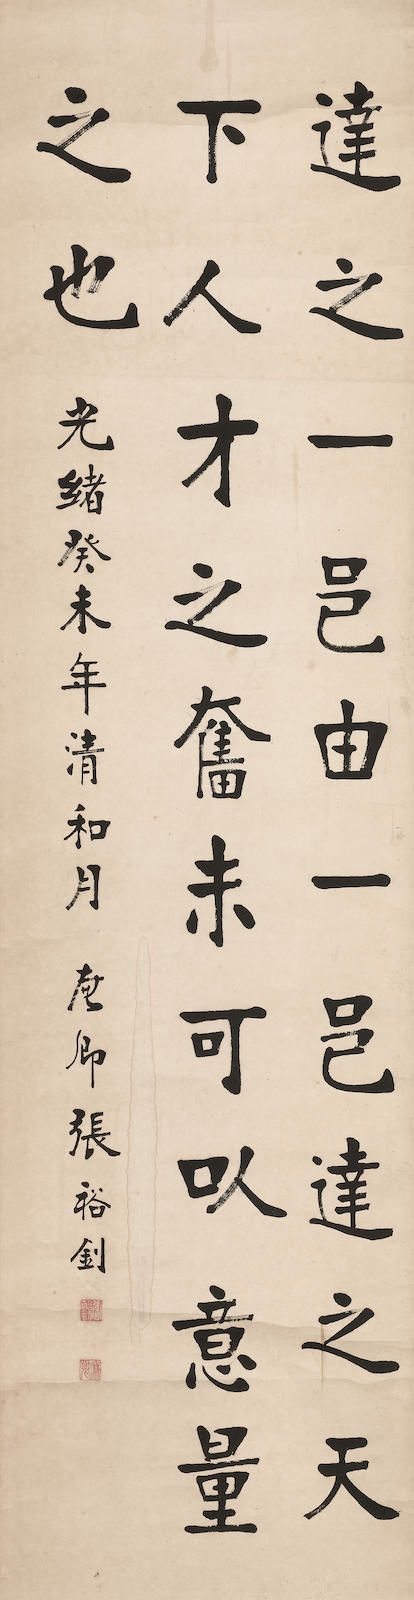 達之一邑由一邑達之天
下人才之奮未可以意量
之也
光緒癸未年清和月 廉卿張裕釗